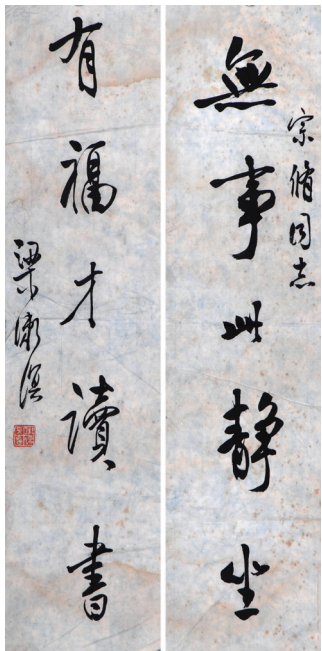 宗脩同志
無事此静坐
有福才讀書
梁漱溟